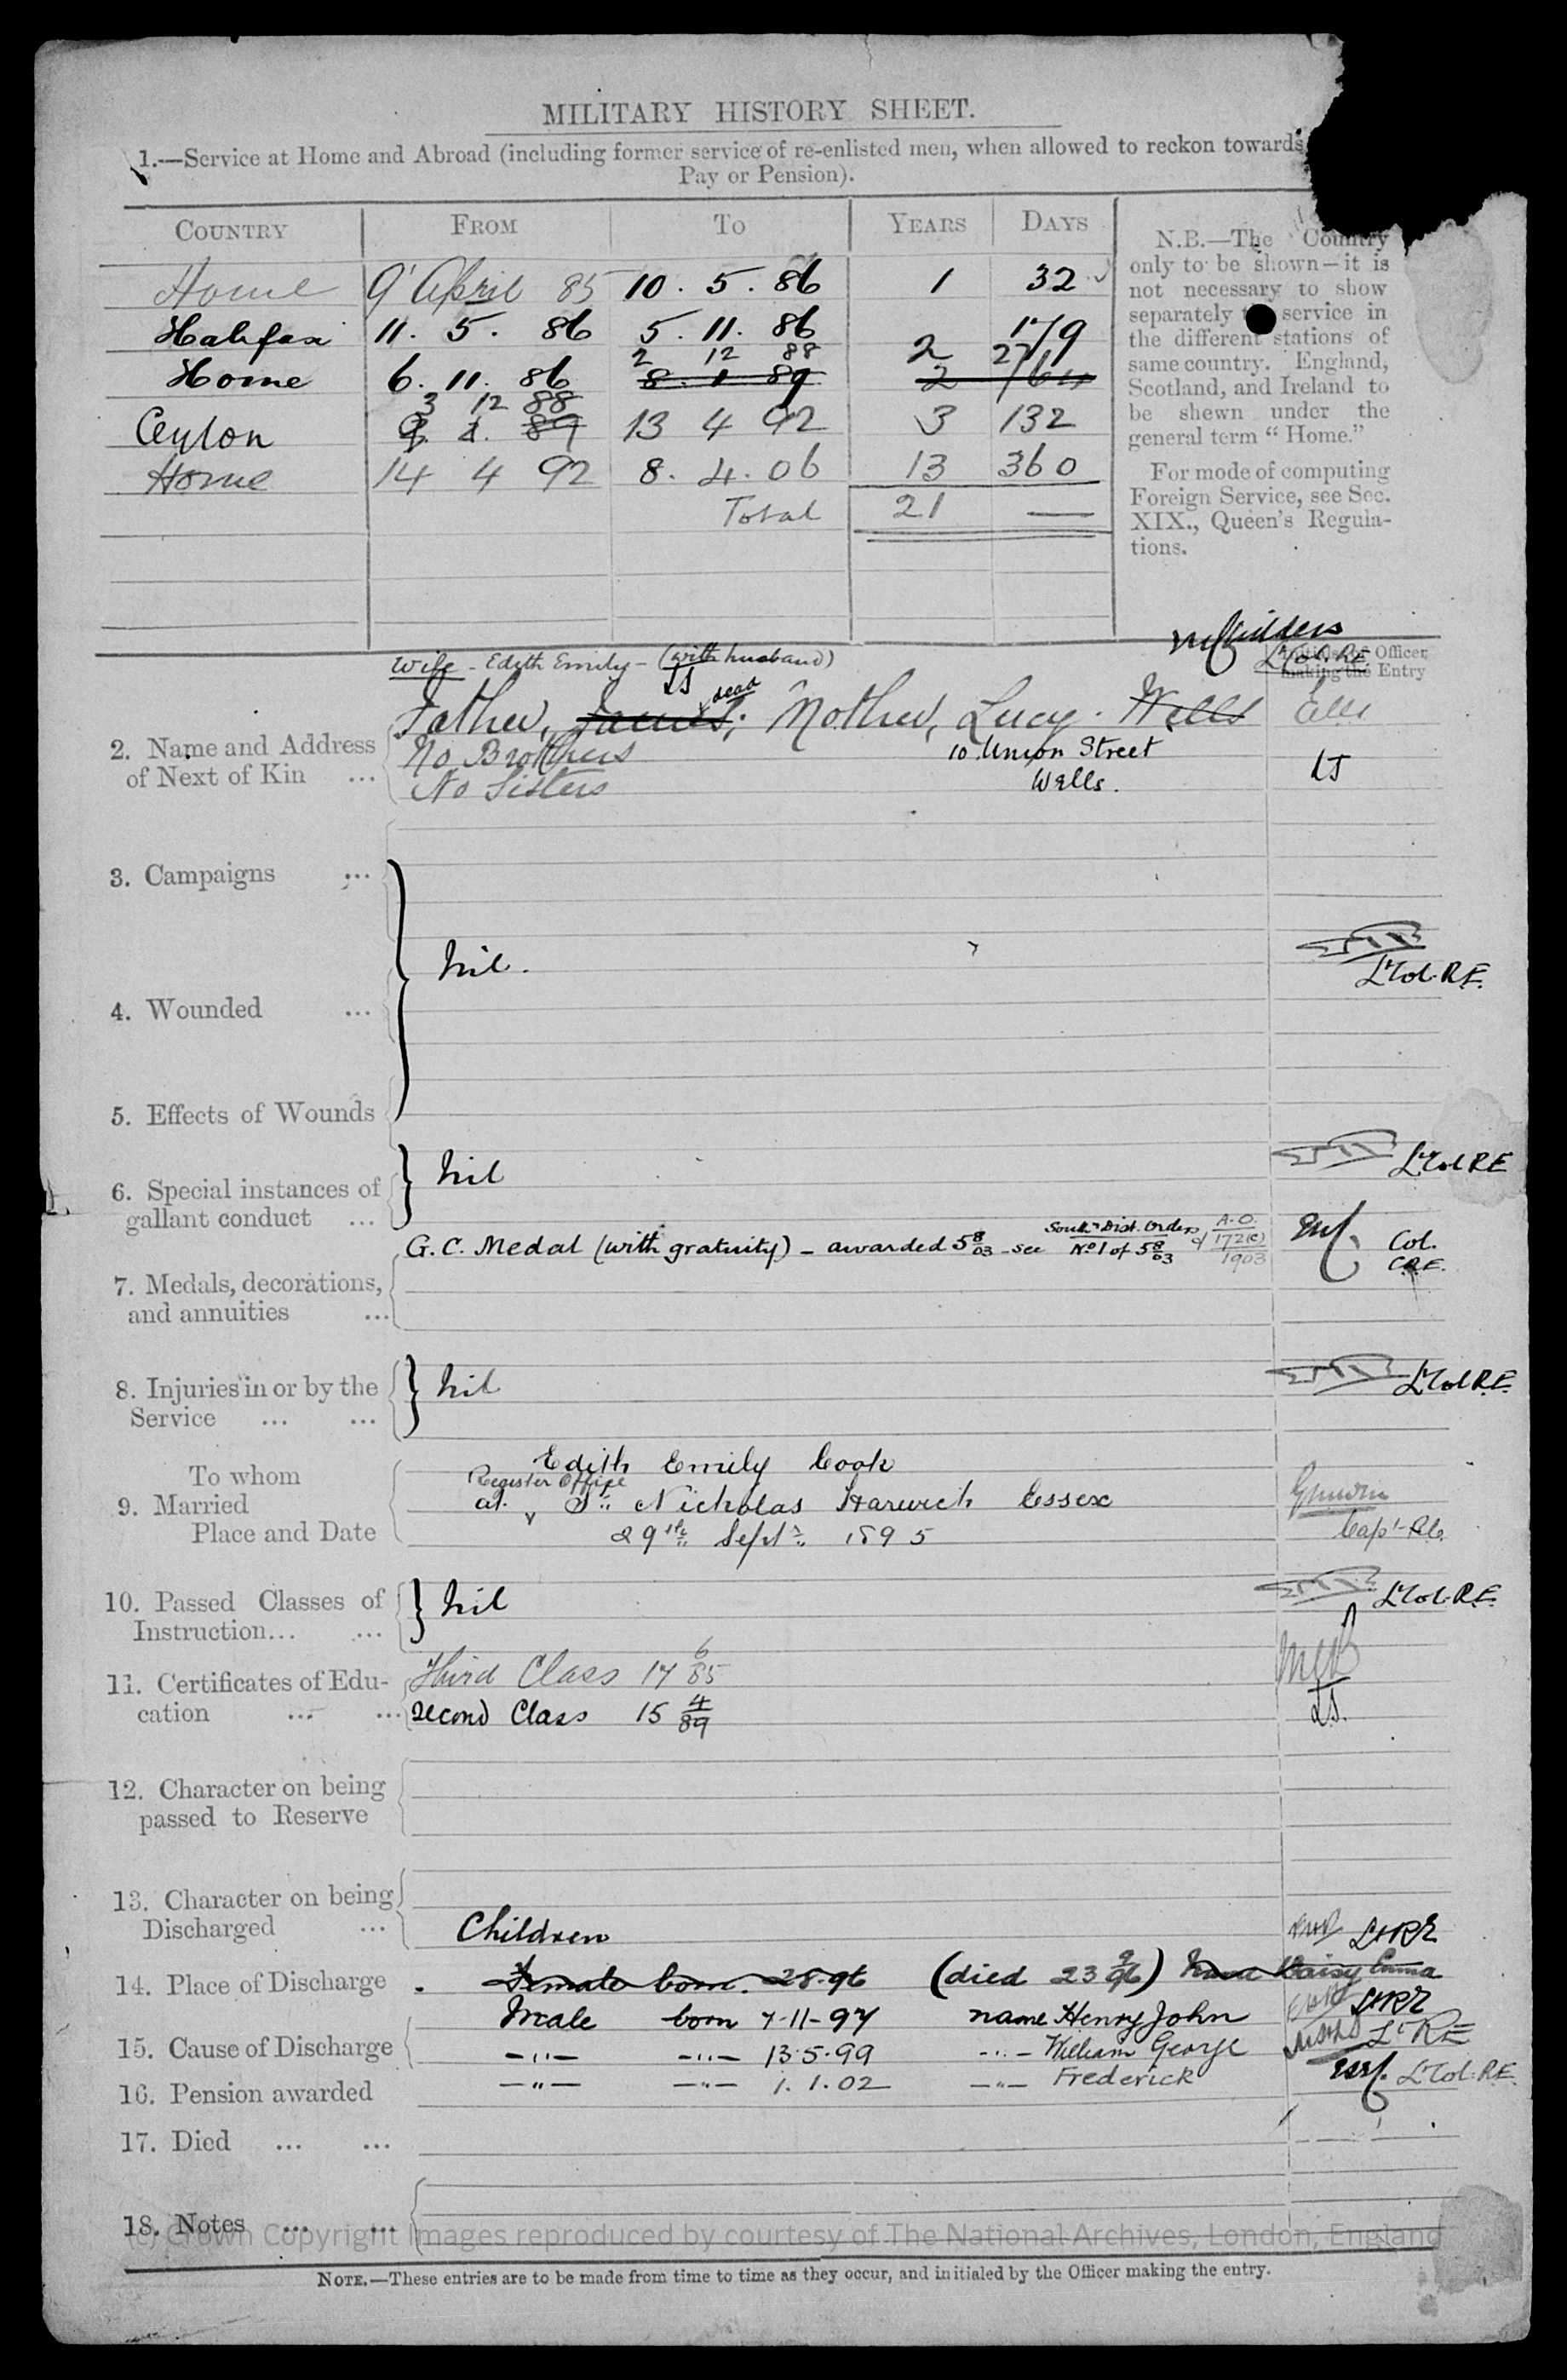 MILITARY HISTORY SHEET.
1.—Service at Home and Abroad (including former service of re-enlisted men, when allowed to reckon towards
Pay or Pension).
COUNTRY FROM TO YEARS DAYS
Home 9' April 85 10. 5. 86 1 32
Halifax 11. 5. 86 5. 11. 86 179
2 12 88 2
Home 6. 11. 86 8. 1 89 2
3 12 88
Ceylon 9. 1. 89 13 4 92 3 132
Home 14 4 92 8. 4. 06 13 360
Total 21 —
N.B.—The Country
only to be shown—it is
not necessary to show
separately service in
the different stations of
same country. England,
Scotland, and Ireland to
be shewn under the
general term “Home.”
For mode of computing
Foreign Service, see Sec.
XIX., Queen's Regula-
tions.
Lt Col. RE
Officer
making the Entry
Wife - Edith Emily - (with husband)
LJ
dead
2. Name and Address
of Next of Kin ...
Father, James; Mother, Lucy. Wells
No Brothers 10 Union Street
No Sisters Wells. LJ
3. Campaigns ...
nil.
Lt Col. R.E.
4. Wounded ...
5. Effects of Wounds
6. Special instances of
gallant conduct ...
nil
Lt Col R.E
7. Medals, decorations,
and annuities ...
G.C. Medal (with gratuity) — awarded 5 8/03 — see South'n Dist. Orders No 1 of 5 8/03 A.O. 172(c) 1903
Col.
C.R.E.
8. Injuries in or by the
Service ... ...
nil
Lt Col R.E.
To whom
9. Married
Place and Date
Edith Emily Cook
Register Office
at St Nicholas Harwich Essex
29th Sept 1895
Capt R.E.
10. Passed Classes of
Instruction... ...
nil
Lt Col. R.E.
11. Certificates of Edu-
cation ... ...
Third Class 17 6/85
Second Class 15 4/89
LJ.
12. Character on being
passed to Reserve
13. Character on being
Discharged ...
Children
Lt RE
14. Place of Discharge
Female born 28-96 (died 23 9/96) Daisy Emma
Male born 7-11-97 name Henry John
Lt RE
15. Cause of Discharge
—"— —"— 13.5.99 —"— William George
Lt RE
16. Pension awarded
—"— —"— 1.1.02 —"— Frederick
Lt Col. R.E.
17. Died ... ...
18. Notes ... ...
(c) Crown Copyright Images reproduced by courtesy of The National Archives, London, England
NOTE.—These entries are to be made from time to time as they occur, and initialed by the Officer making the entry.